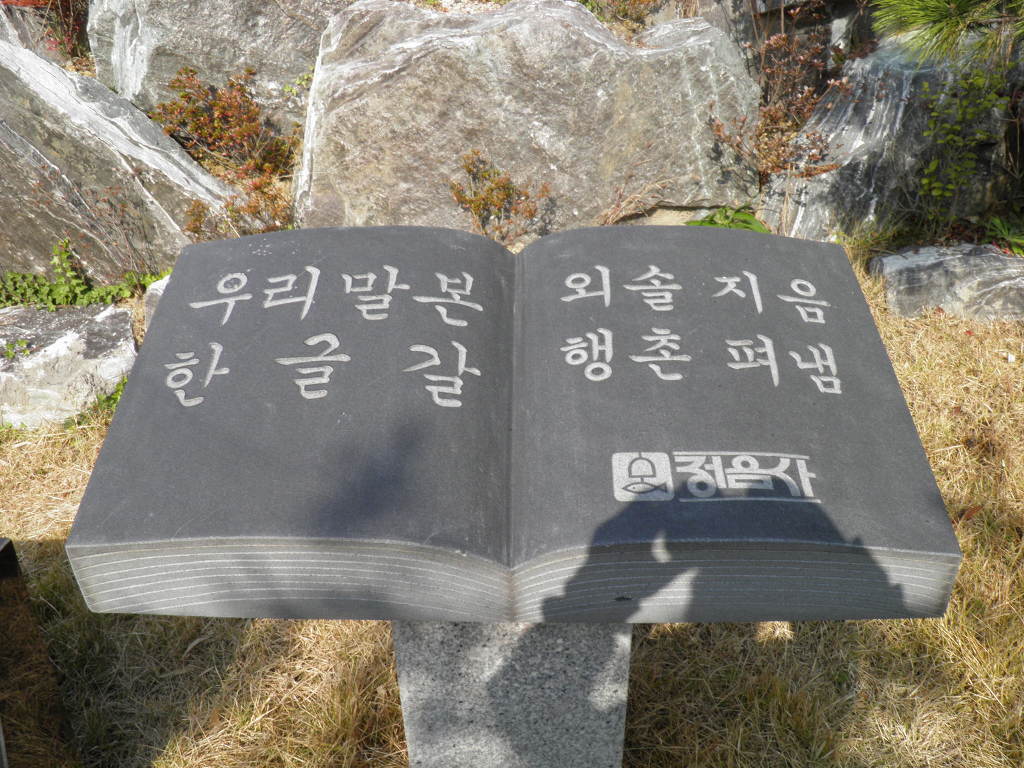 우리 말 본
한 글 갈
외솔 지음
행촌 펴냄
정음사